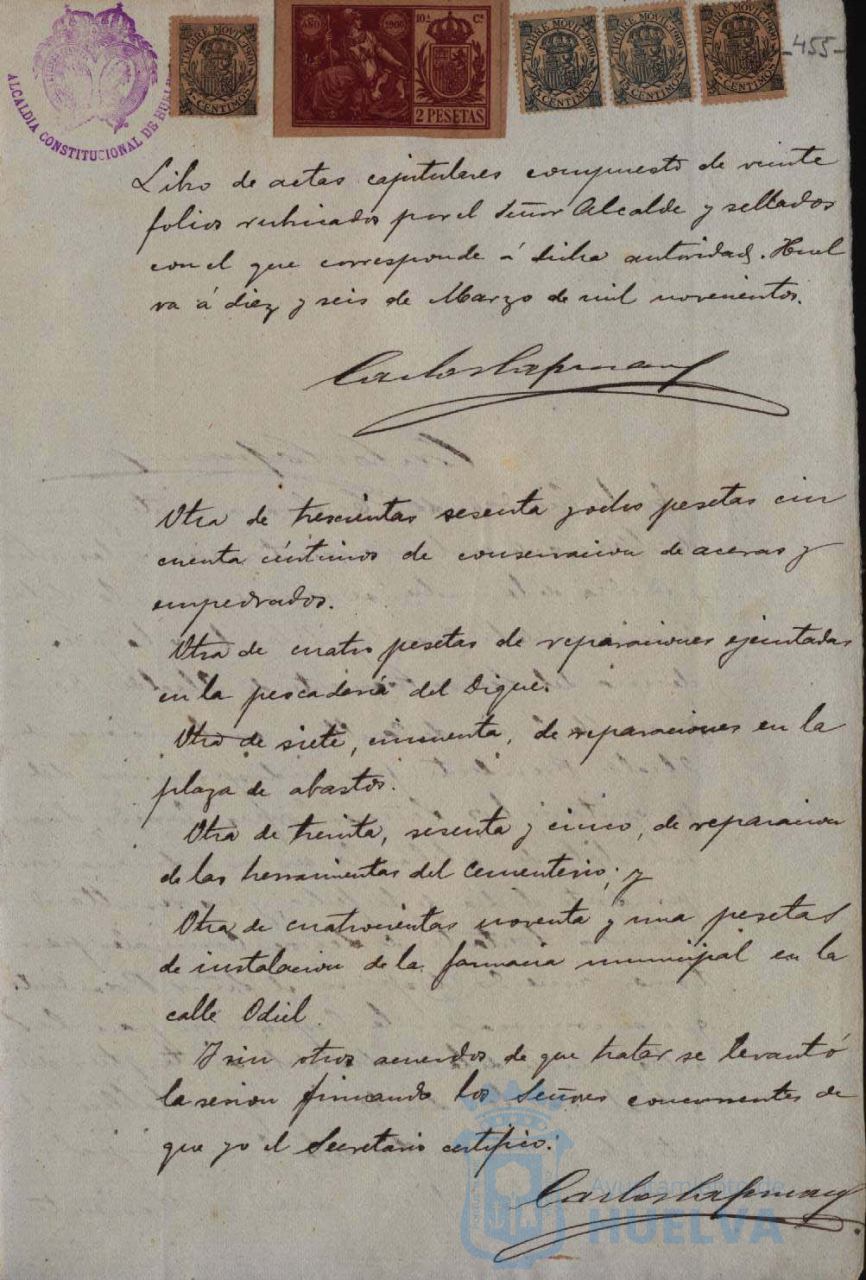 ALCALDIA CONSTITUCIONAL DE HUELVA
TIMBRE MOVIL 1900
5 CENTIMOS
AÑO 1900 10ª Cª
2 PESETAS
TIMBRE MOVIL 1900
15 CENTIMOS
TIMBRE MOVIL 1900
15 CENTIMOS
TIMBRE MOVIL 1900
5 CENTIMOS
-455-
Libro de actas capitulares compuesto de veinte
folios rubricados por el Señor Alcalde y sellados
con el que corresponde á dicha autoridad. Huel
va á diez y seis de Marzo de mil novecientos.
Carlos Capmany
Otra de trescientas sesenta y ocho pesetas cin
cuenta céntimos de conservacion de aceras y
empedrados.
Otra de cuatro pesetas de reparaciones ejecutadas
en la pescadería del Dique.
Otra de siete, cincuenta, de reparaciones en la
plaza de abastos.
Otra de treinta, sesenta y cinco, de reparacion
de las herramientas del cementerio; y
Otra de cuatrocientas noventa y una pesetas
de instalacion de la farmacia municipal en la
calle Odiel.
Y sin otros acuerdos de que tratar se levantó
la sesion firmando los Señores concurrentes de
que yo el Secretario certifico.
Carlos Capmany
Ayuntamiento de
HUELVA